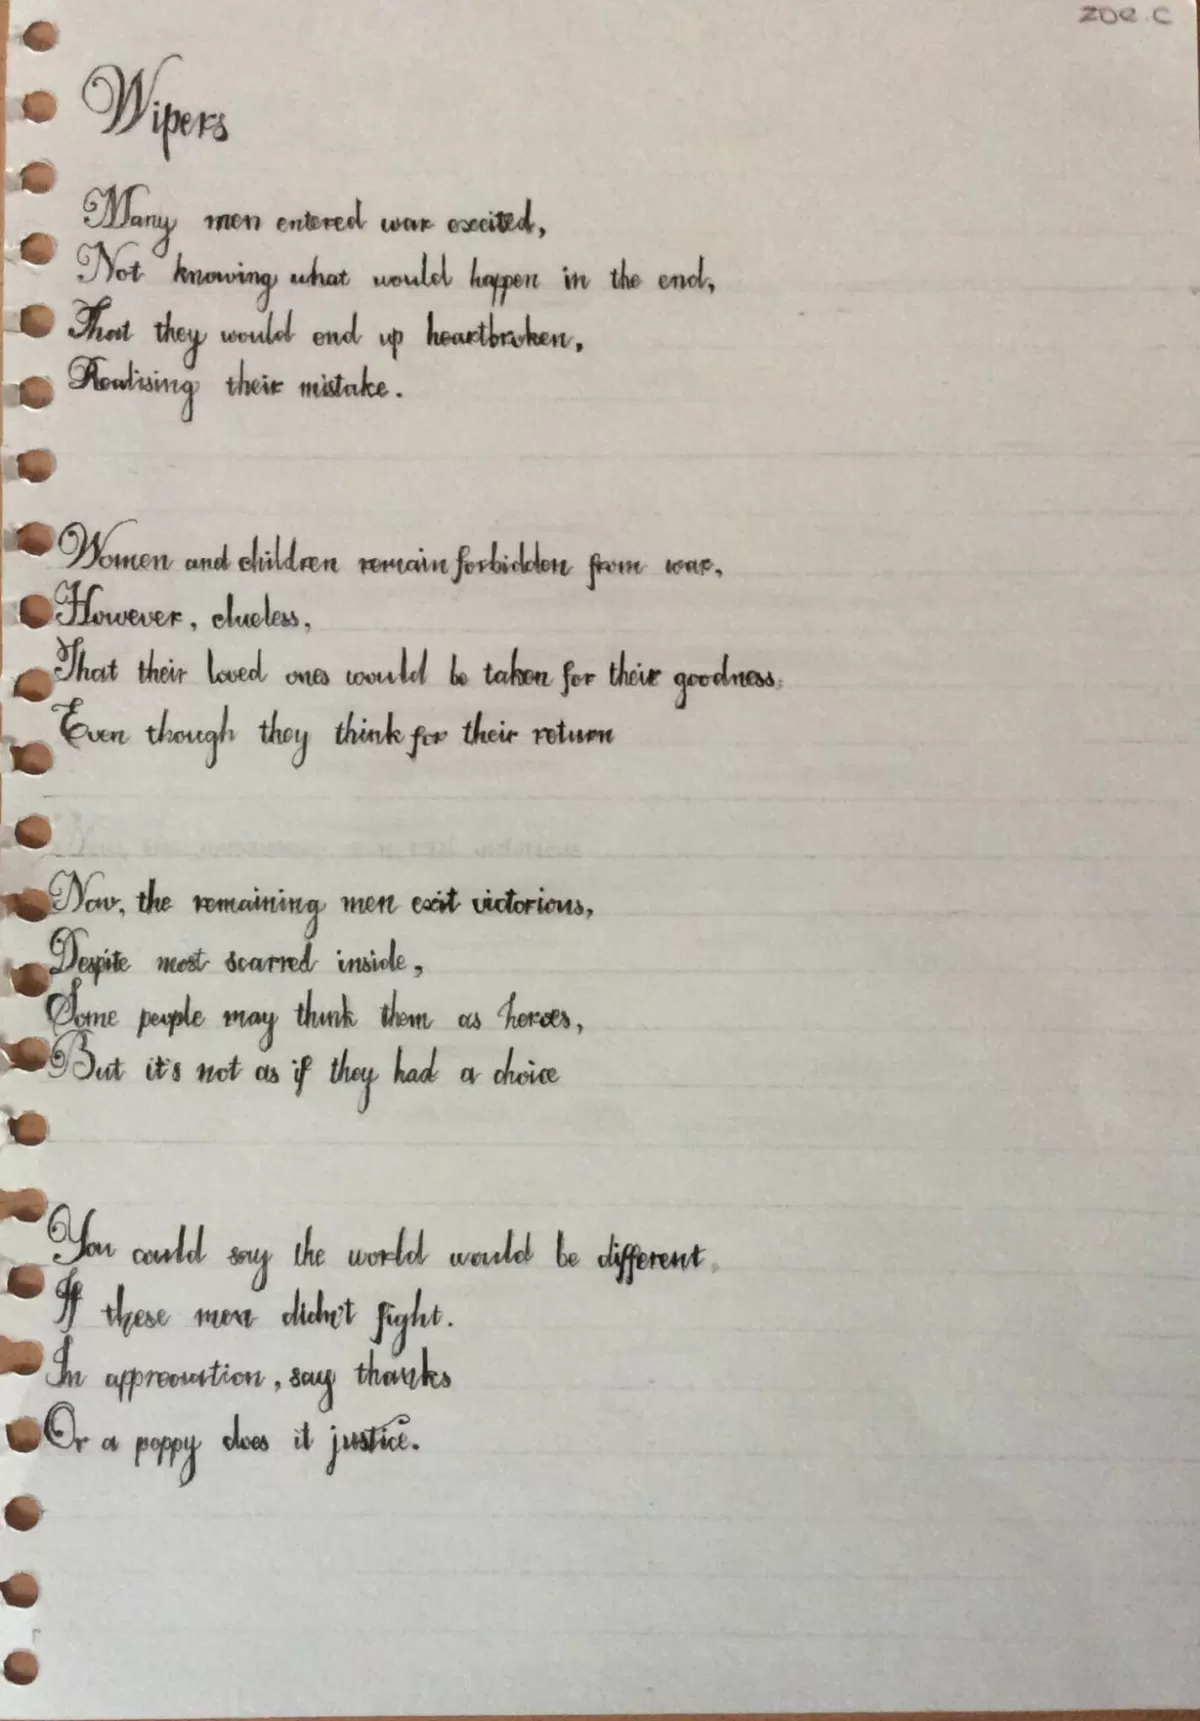 Zoe.C
Wipers
Many men entered war excited,
Not knowing what would happen in the end,
That they would end up heartbroken,
Realising their mistake.
Women and children remain forbidden from war,
However, clueless,
That their loved ones would be taken for their goodness,
Even though they think for their return
Now, the remaining men exit victorious,
Despite most scarred inside,
Some people may think them as heroes,
But it's not as if they had a choice
You could say the world would be different,
If these men didn't fight.
In appreciation, say thanks
Or a poppy does it justice.